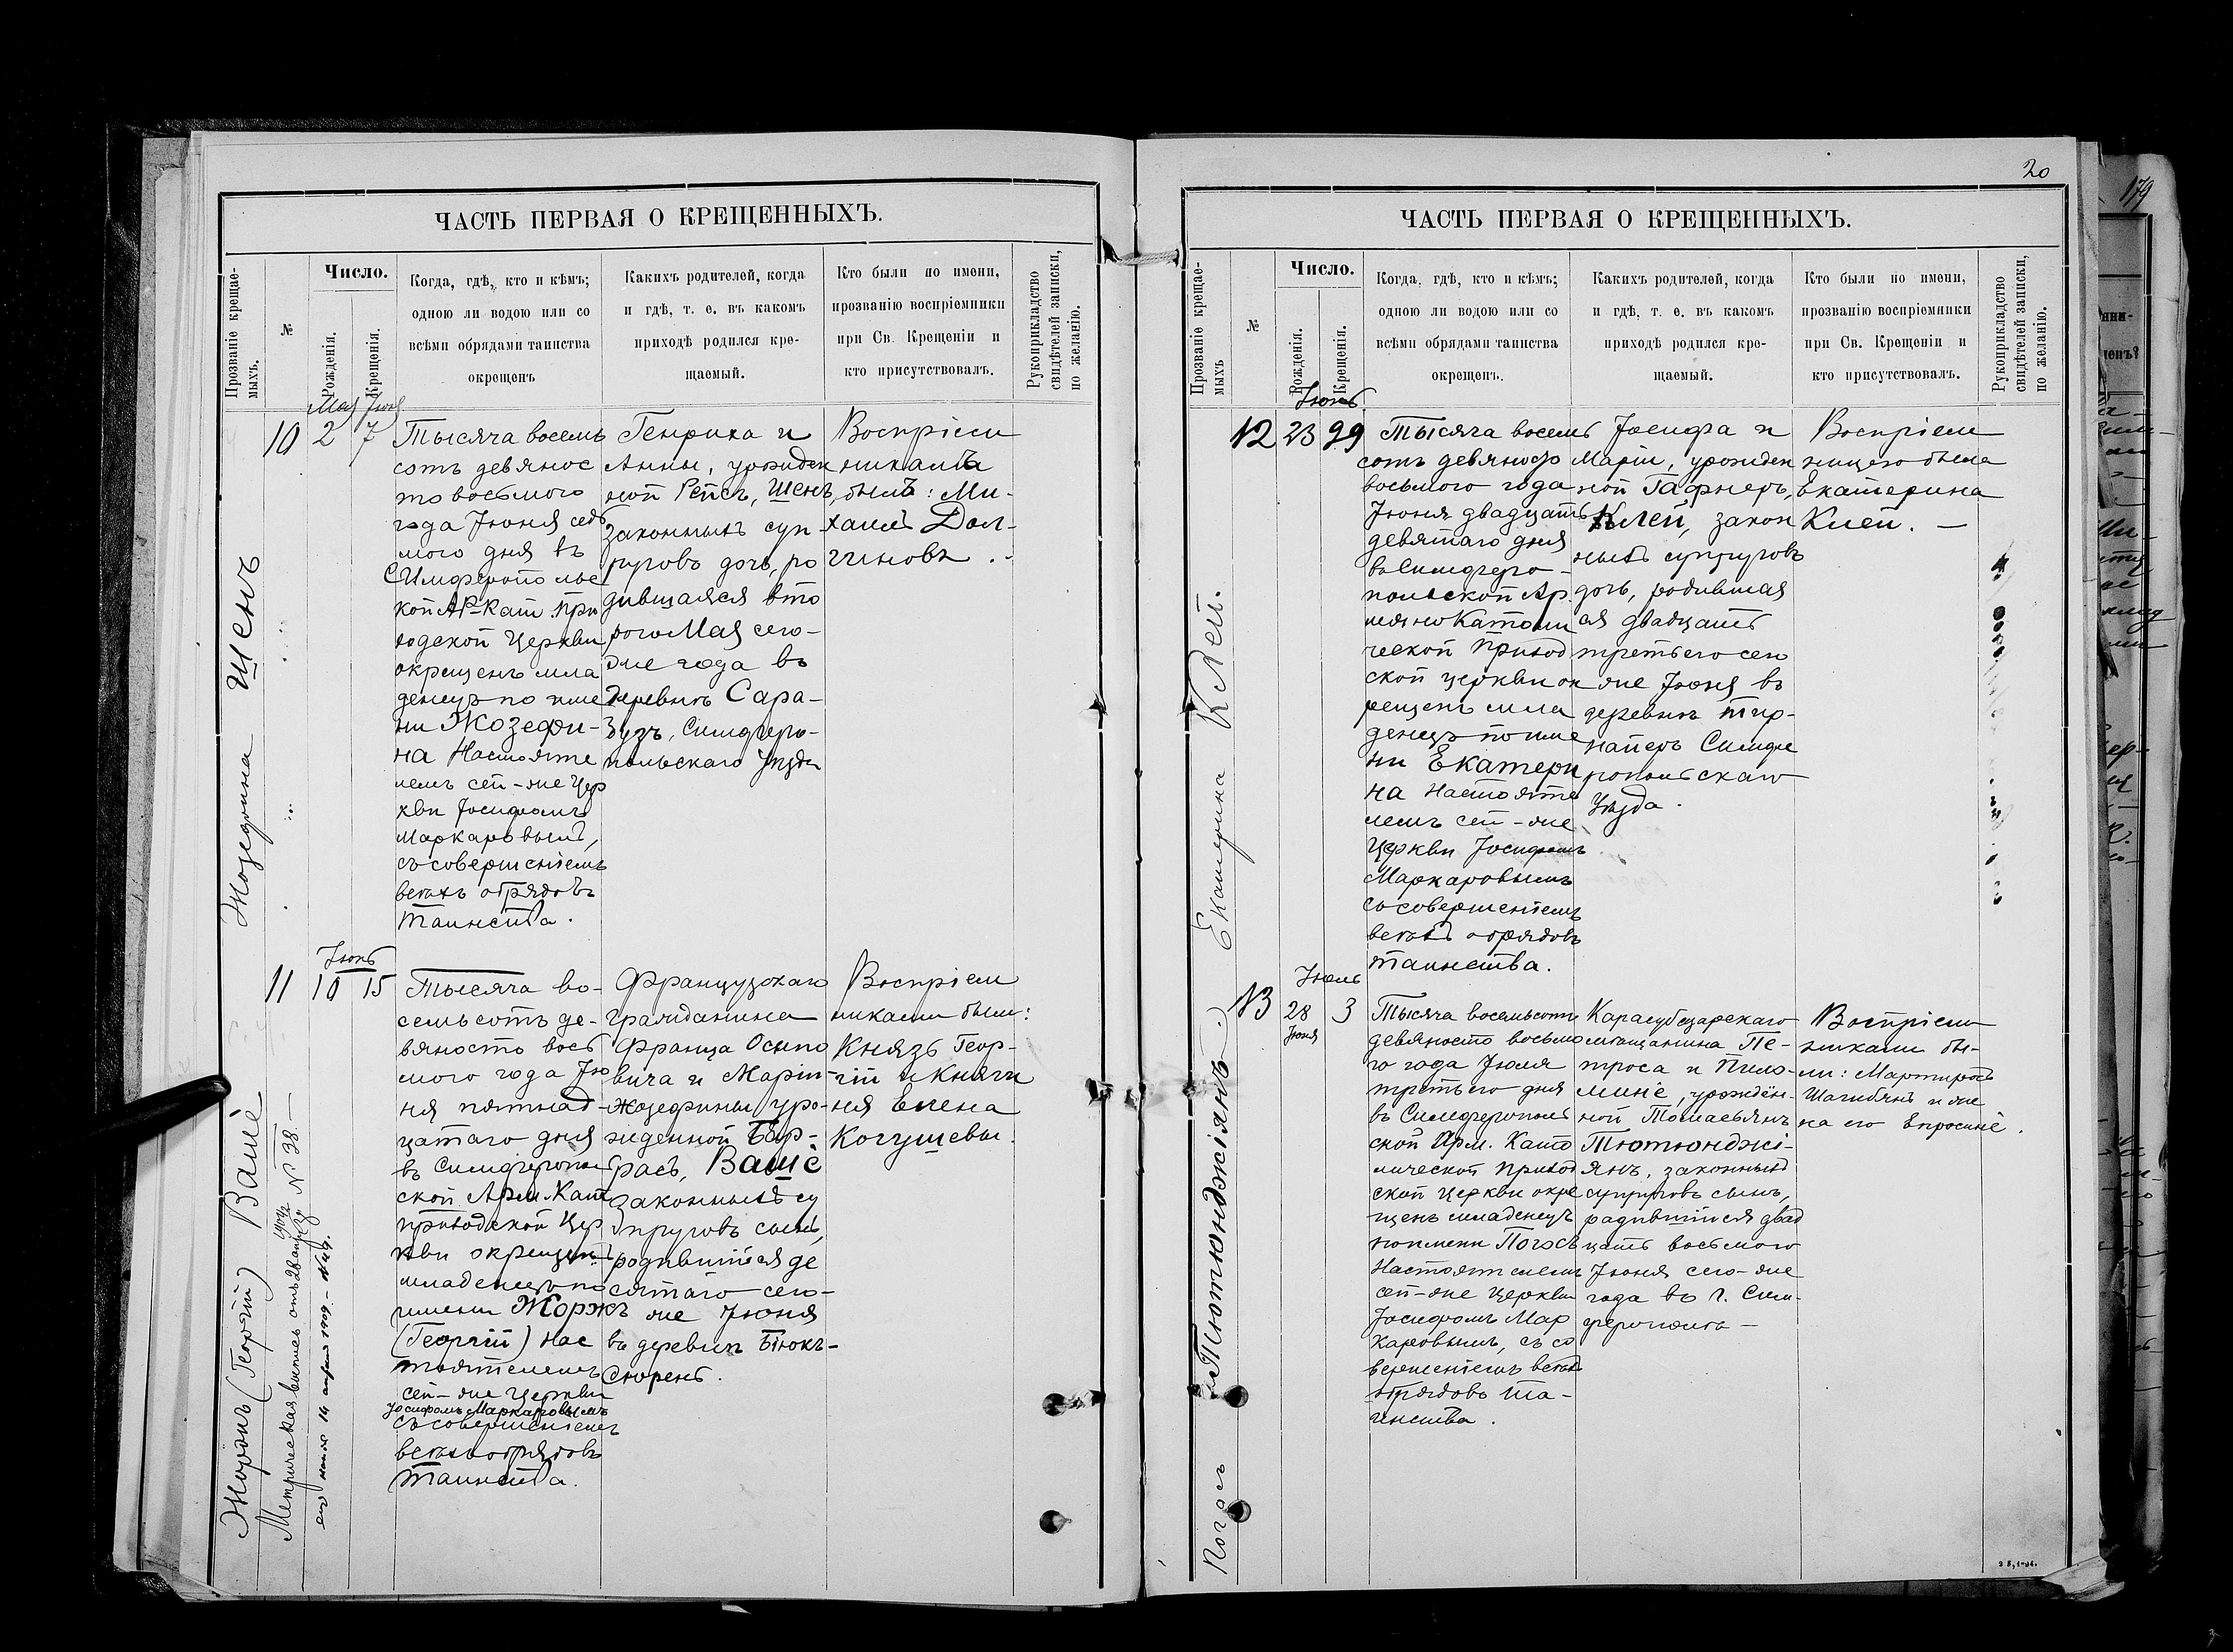 ЧАСТЬ ПЕРВАЯ О КРЕЩЕННЫХЪ.
Прозваніе крещае-
мыхъ.
№
Число.
Рожденія.
Крещенія.
Когда, гдѣ, кто и кѣмъ;
одною ли водою или со
всѣми обрядами таинства
окрещенъ
Какихъ родителей, когда
и гдѣ, т. е. въ какомъ
приходѣ родился кре-
щаемый.
Кто были по имени,
прозванію воспріемники
при Св. Крещеніи и
кто присутствовалъ.
Рукоприкладство
свидѣтелей записки,
по желанію.
Жозефина Шенъ
10
Мая
2
Іюня
7
Тысяча восемь
сотъ девянос
то восьмого
года Іюня седь
мого дня въ
Симферопольс
кой Ар-Кат. При
ходской Церкви
окрещенъ мла
денецъ по име
ни Жозефи-
на Настояте
лемъ сей-же Цер
кви Іосифомъ
Маркаровымъ,
съ совершеніемъ
всѣхъ обрядовъ
Таинства.
Генриха и
Анны, урожден
ной Рейсъ, Шенъ,
законныхъ суп
руговъ дочь, ро
дившаяся вто
рого Мая сего-
же года въ
деревнѣ Сара-
бузъ, Симферо-
польскаго уѣзда
Воспріем
никамъ
былъ: Ми-
хаилъ Дол-
гиновъ.
Жоржъ (Георгій) Вашё
Метрическая выпись отъ
№ 38.
14 1909. - № 49.
11
Іюнь
10
15
Тысяча во-
семьсотъ де-
вяносто вось
мого года Ію
ня пятнад-
цатаго дня
въ Симферополь
ской Арм. Кат
приходской Цер
кви окрещенъ
младенецъ по
имени Жоржъ
(Георгій) Нас
тоятелемъ
сей-же Церкви
Іосифомъ Маркаровымъ
съ совершеніемъ
всѣхъ обрядовъ
Таинства.
Французскаго
гражданина
Франца Осипо
вича и Маріи-
Жозефины уро-
жденной Бар-
расъ, Вашё
законныхъ су
пруговъ сынъ,
родившійся де
сятаго сего-
же Іюня
въ деревнѣ Біюкъ-
Сюрень.
Воспріем
никами были:
Князь Геор-
гій и Княги
ня Елена
Когушевы.
20
ЧАСТЬ ПЕРВАЯ О КРЕЩЕННЫХЪ.
Прозваніе крещае-
мыхъ
№
Число.
Рожденія.
Крещенія.
Когда, гдѣ, кто и кѣмъ;
одною ли водою или со
всѣми обрядами таинства
окрещенъ.
Какихъ родителей, когда
и гдѣ, т. е. въ какомъ
приходѣ родился кре-
щаемый.
Кто были по имени,
прозванію воспріемники
при Св. Крещеніи и
кто присутствовалъ.
Рукоприкладство
свидѣтелей записки,
по желанію.
Екатерина Клей.
12
Іюнь
23
29
Тысяча восемь
сотъ девяносто
восьмого года
Іюня двадцать
девятаго дня
въ Симферо-
польской Ар.
мяно Католи
ческой Приход
ской церкви ок
рещенъ мла
денецъ по име
ни Екатери
на Настояте
лемъ сей-же
Церкви Іосифомъ
Маркаровымъ
съ совершеніемъ
всѣхъ обрядовъ
таинства.
Іосифа и
Маріи, урожден
ной Гафнеръ,
Клей, закон
ныхъ супруговъ
дочь, родившая
ся двадцать
третьего сего
же Іюня въ
деревнѣ
Симфе
ропольскаго
Уѣзда.
Воспріем
ницею была
Екатерина
Клей. —
Погосъ Тютюнджіянъ
13
Іюль
28
Іюня
3
Тысяча восемьсотъ
девяносто восьмо
го года Іюля
третьего дня
въ Симферополь
ской Арм. Като
лической приход
ской церкви окре
щенъ младенецъ
по имени Погосъ
Настоятелемъ
сей-же церкви
Іосифомъ Мар
каровымъ, съ со
вершеніемъ всѣхъ
обрядовъ та-
инства.
Карасубазарскаго
мѣщанина Пе-
троса и Пило-
мине, урождён-
ной Томасьянъ
Тютюнджі-
янъ, законныхъ
супруговъ сынъ,
радившійся двад
цать восьмого
Іюня сего-же
года въ г. Сим-
ферополѣ —
Воспріем
никами бы-
ли: Мартиросъ
Шагибянъ и же
на его Епросине.
3 8, 1-94.
179